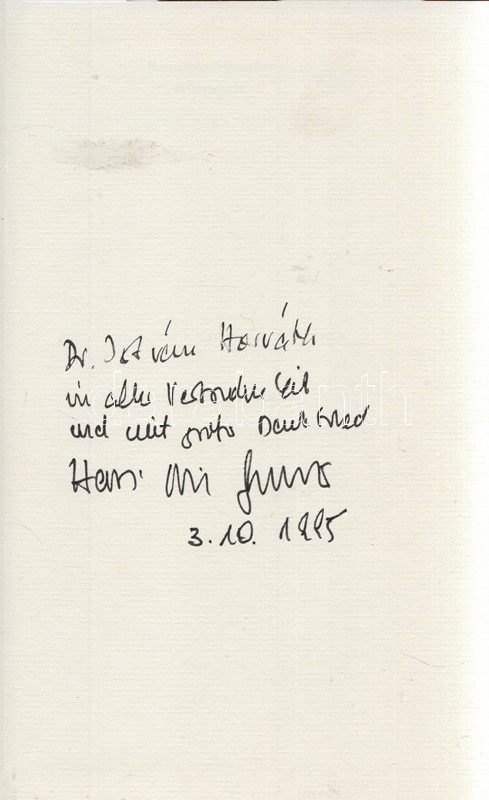 Dr. István Horváth
in alter Verbundenheit
und mit großer Dankbarkeit
Hans
3.10.1995